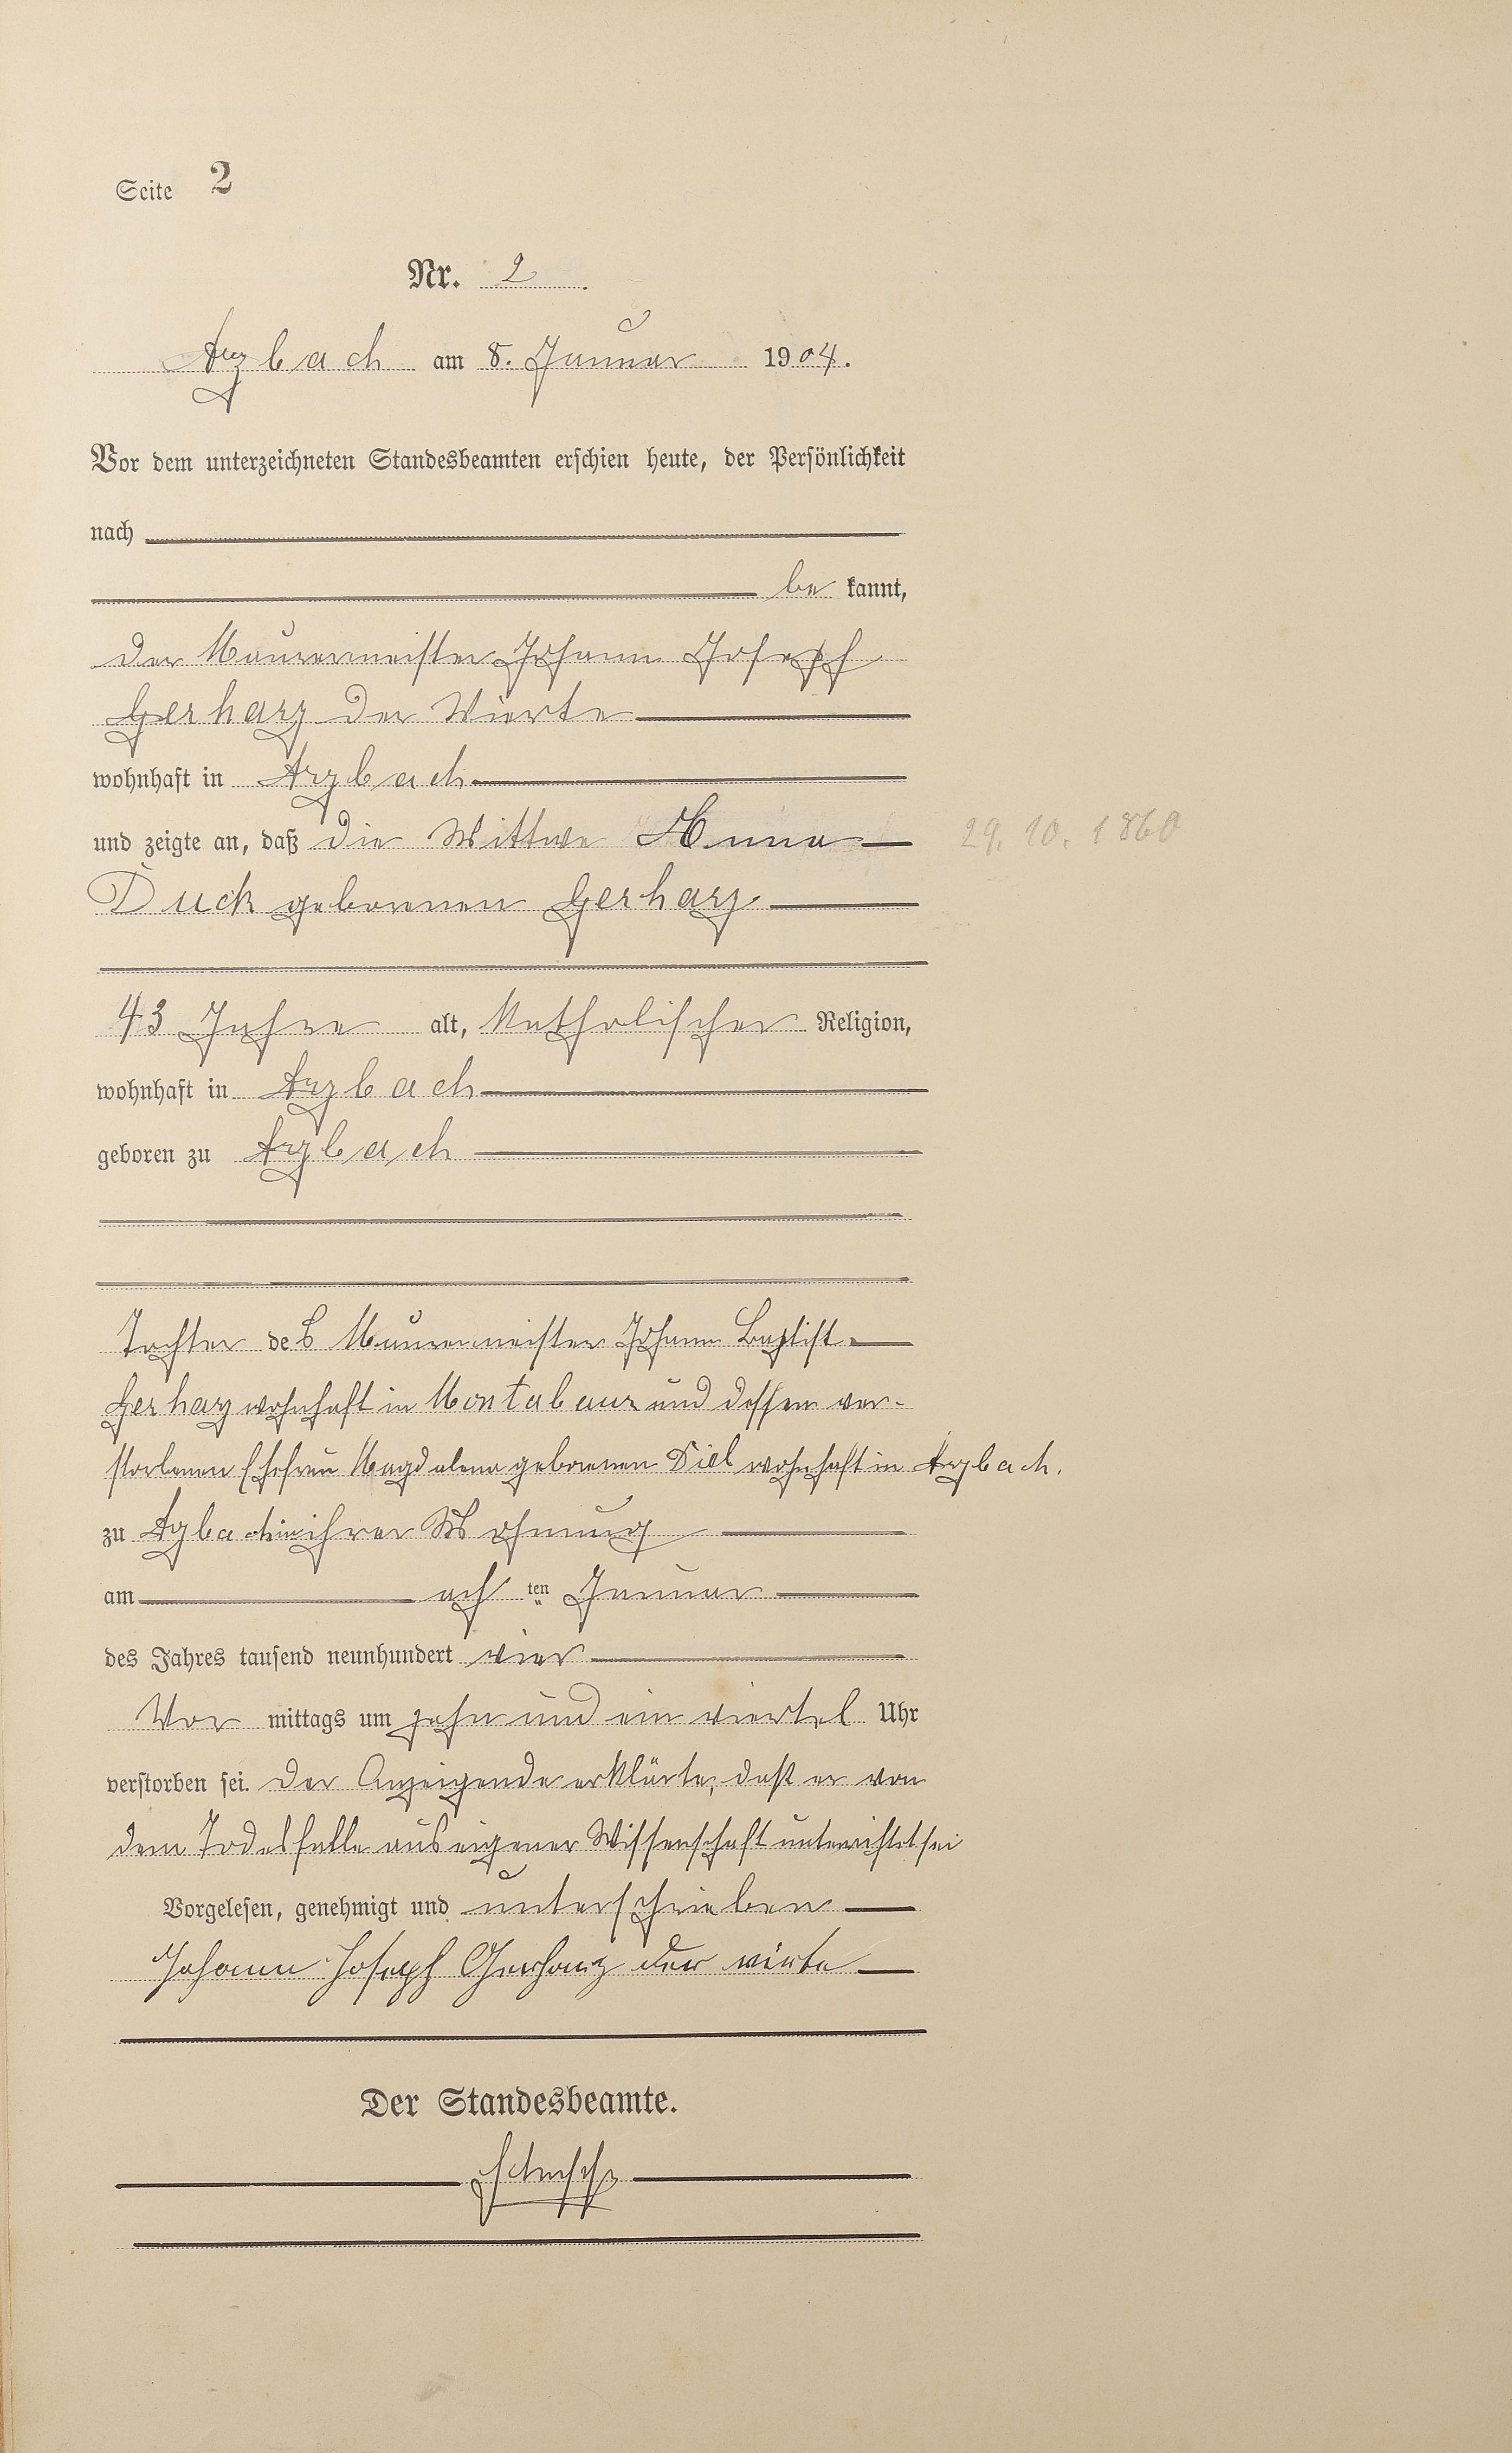 Seite 2
Nr. 2.
Arzbach am 8. Januar 1904.
Vor dem unterzeichneten Standesbeamten erschien heute, der Persönlichkeit
nach
be kannt,
der Maurermeister Johann Joseph
Gerharz der Vierte
wohnhaft in Arzbach
und zeigte an, daß die Wittwe Anna
29. 10. 1860
Duck geborenen Gerharz
43 Jahre alt, Katholischer Religion,
wohnhaft in Arzbach
geboren zu Arzbach
Tochter des Maurermeister Johann Baptist
Gerharz wohnhaft in Montabaur und dessen ver-
storbenen Ehefrau Magdalena geborenen Diel wohnhaft in Arzbach.
zu Azbach in ihrer Wohnung
am ach ten Januar
des Jahres tausend neunhundert vier
Vor mittags um zehn und ein viertel Uhr
verstorben sei. Der Anzeigende erklärte, daß er von
dem Todesfalle aus eigener Wissenschaft unterrichtet sei
Vorgelesen, genehmigt und unterschrieben
Johann Joseph Gerharz der vierte
Der Standesbeamte.